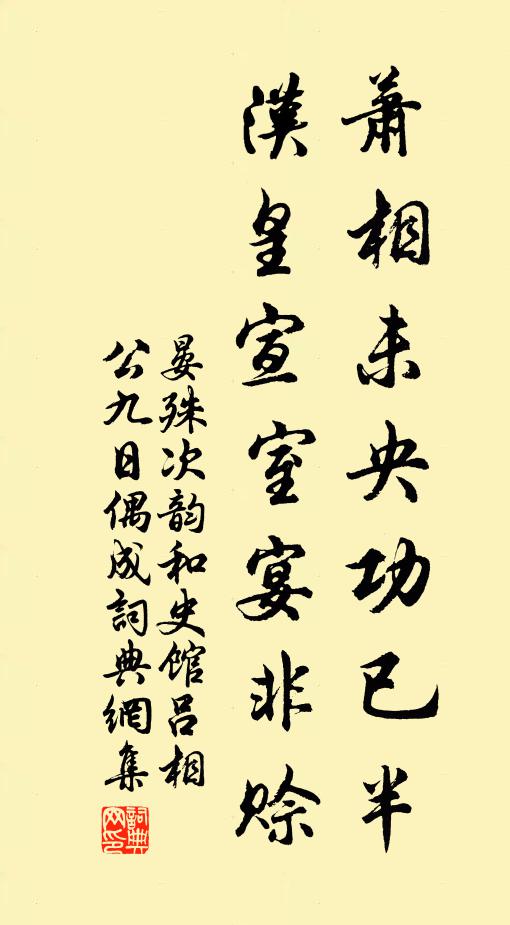 萧相未央功已半
漢皇宣室宴非賒
晏殊次韵和史館吕相
公九日偶成詞典網集
詞典網印